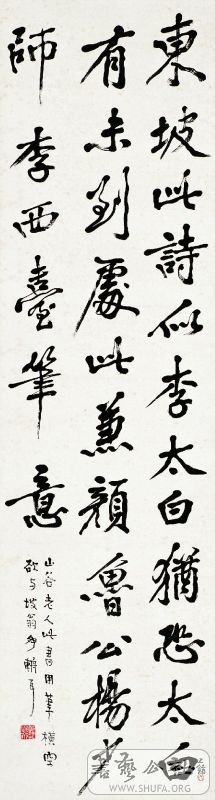 東坡此詩似李太白猶恐太白
有未到處此兼顏魯公楊少
師李西臺筆意
山谷老人此書用筆橫空
欲与坡翁
書藝公社
WWW.SHUFA.COM